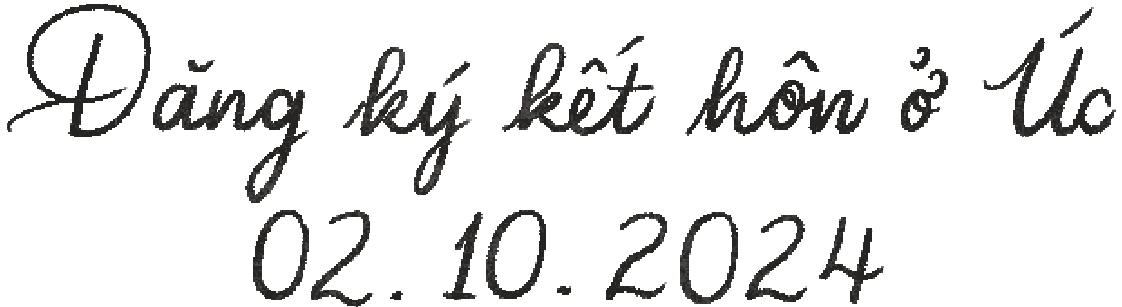 Đăng ký kết hôn ở Úc
02.10.2024